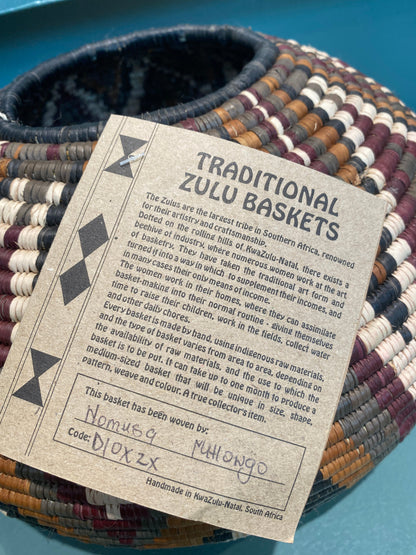 TRADITIONAL
ZULU BASKETS
The Zulus are the largest tribe in Southern Africa, renowned
for their artistry and craftsmanship.
Dotted on the rolling hills of KwaZulu-Natal, there exists a
beehive of industry, where numerous women work at the art
of basketry. They have taken the traditional art form and
turned it into a way in which to supplement their incomes, and
in many cases their only means of income.
The women work in their homes, where they can assimilate
basket-making into their normal routine - giving themselves
time to raise their children, work in the fields, collect water
and other daily chores.
Every basket is made by hand, using indigenous raw materials,
and the type of basket varies from area to area, depending on
the availability of raw materials, and the use to which the
basket is to be put. It can take up to one month to produce a
medium-sized basket that will be unique in size, shape,
pattern, weave and colour. A true collector's item.
This basket has been woven by:
Nomusa Mhlongo
Code: D10XZX
Handmade in KwaZulu-Natal, South Africa